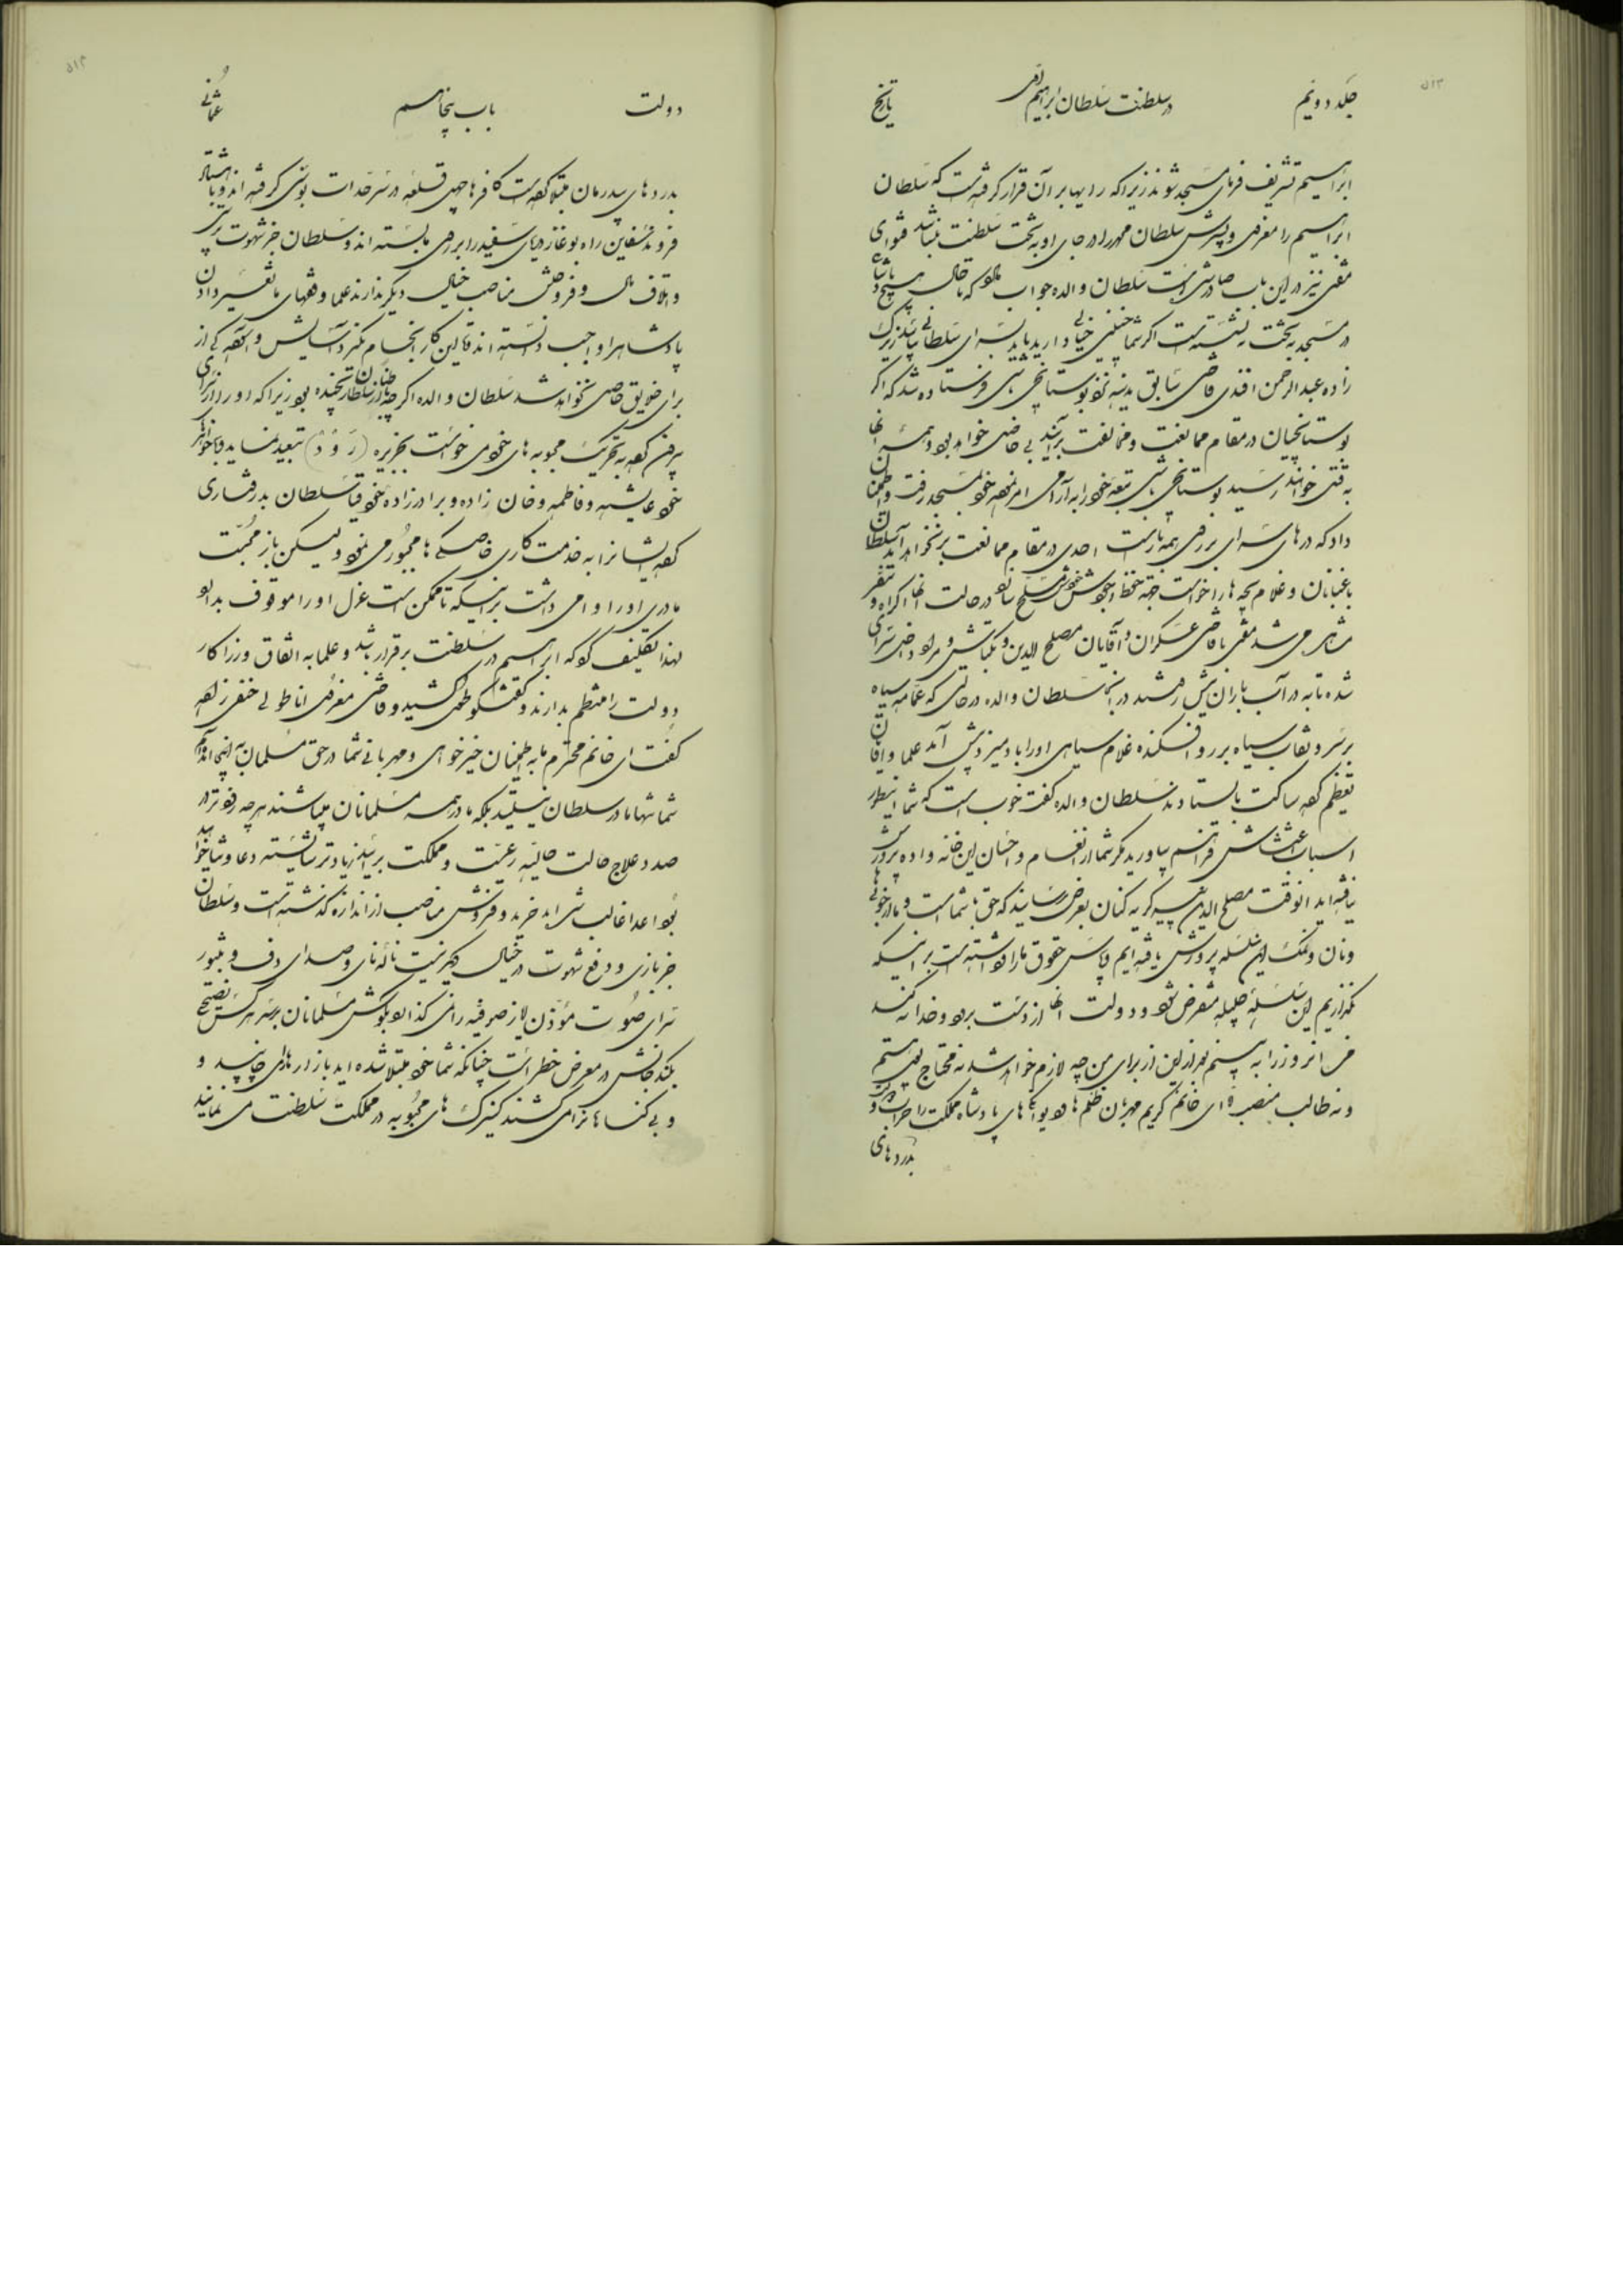 ۵۱۳
جلد دویم در سلطنت سلطان ابراهیم تاریخ
ابراهیم تشریف فرمای مسجد شوند زیرا که رایها بر آن قرار گرفته است که سلطان
ابراهیم را معزول و پسرش سلطان محمد را در جای او به تخت سلطنت بنشانند فتوای
مفتی نیز در این باب صادر شده است سلطان والده جواب داد که تا حال هیچ پادشاه
در مسجد به تخت ننشسته است اگر شما چنین خیالی دارید باید بسرای سلطانی بیایید
زاده عبدالرحمن افندی قاضی سابق مدینه نزد بوستانچی باشی فرستاده شد که اگر
بوستانچیان در مقام ممانعت و مخالفت برآیند بی حاصل خواهد بود و همه آنها
به قتل خواهند رسید بوستانچی باشی تبعه خود را به آرامی امر نموده خود بمسجد رفت و اطمینان
داد که درهای سرای بر روی همه باز است احدی در مقام ممانعت بر نخواهد آمد سلطان
باغبانان و غلام بچه ها را خواست جهة حفظ وجودش مسلح سازد در حالت آنها اکراه و تنفر
مشاهده می شد مفتی با قاضی عسکران و آقایان مصلح الدین و بکتاش و مراد داخل سرای
شده تا به در آب باران پیش رفتند در آنجا سلطان والده در حالتی که عمامه سیاه
بر سر و نقاب سیاه بر رو افکنده غلام سیاهی او را باد میزد پیش آمد علما و آقایان
تعظیم کرده ساکت بایستادند سلطان والده گفت خوب است که شما اینطور
اسباب اغتشاش فراهم بیاورید مگر شما از انعام و احسان این خانواده پرورش
نیافته اید آنوقت مصلح الدین پیر گریه کنان بعرض رسانید که حق با شما است و ما از خوان
و نان و نمک این سلسله پرورش یافته ایم پاس حقوق ما را واداشته است بر اینکه
نگذاریم این سلسله جلیله منقرض شود و دولت آنها از دست برود و خدا نکند
من آنروز را به بینم بعد از این از برای من چه لازم خواهد شد نه محتاج نقد هستم
و نه طالب منصب ای خانم کریم مهربان ظلمها و دیوانگی های پادشاه مملکت را خراب و
بدردهای
۵۱۴
دولت باب پنجاهم عثمانی
بدردهای بیدرمان مبتلا کرده است کافرها چهل قلعه در سرحدات بوسنی گرفته اند و با هشتاد
فروند سفاین راه بوغاز دریای سفید را بر روی ما بسته اند و سلطان جز شهوت پرستی
و اتلاف مال و فروختن مناصب خیال دیگر ندارند علما و فقهای ما تغییر دادن
پادشاه را واجب دانسته اند تا این کار انجام نگیرد آسایش و آسودگی از
برای خلایق حاصل نخواهد شد سلطان والده اگرچه از سلطان رنجیده بود زیرا که او را از سرای
بیرون کرده به تحریک محبوبه های خود می خواست بجزیره (رَوْدْ) تبعید نماید و با خواهران
خود عایشه و فاطمه و خان زاده و برادرزاده خود قیا سلطان بدرفتاری
کرده ایشانرا به خدمت کاری خاصکی ها مجبور می نمود ولیکن باز محبت
مادری او را وا می داشت بر اینکه تا ممکن است عزل او را موقوف بدارد
لهذا تکلیف کرد که ابراهیم در سلطنت برقرار باشد و علما به اتفاق وزرا کار
دولت را منتظم بدارند گفتگو بطول کشید و قاضی معزول اناطولی حنفی زاده
گفت ای خانم محترم ما به اطمینان خیرخواهی و مهربانی شما در حق مسلمانان به اینجا آمده ایم
شما تنها مادر سلطان نیستید بلکه مادر همه مسلمانان میباشند هر چه زودتر در
صدد علاج حالت حالیه رعیت و مملکت برآیید زیادتر شایسته دعا و ثنا خواهید
بود اعدا غالب شده اند خرید و فروش مناصب از اندازه گذشته است و سلطان
جز بازی و دفع شهوت در خیال دیگر نیست ناله نای و صدای دف و طنبور
سرای صوت مؤذن ایاصوفیه را نمی گذارد بگوش مسلمانان برسد هر کس نصیحتی
بکند جانش در معرض خطر است چنانکه شما خود مبتلا شده اید بازارها را چاپیدند و
و بی گناهانرا می کشند کنیزک های محبوبه در مملکت سلطنت می نمایند